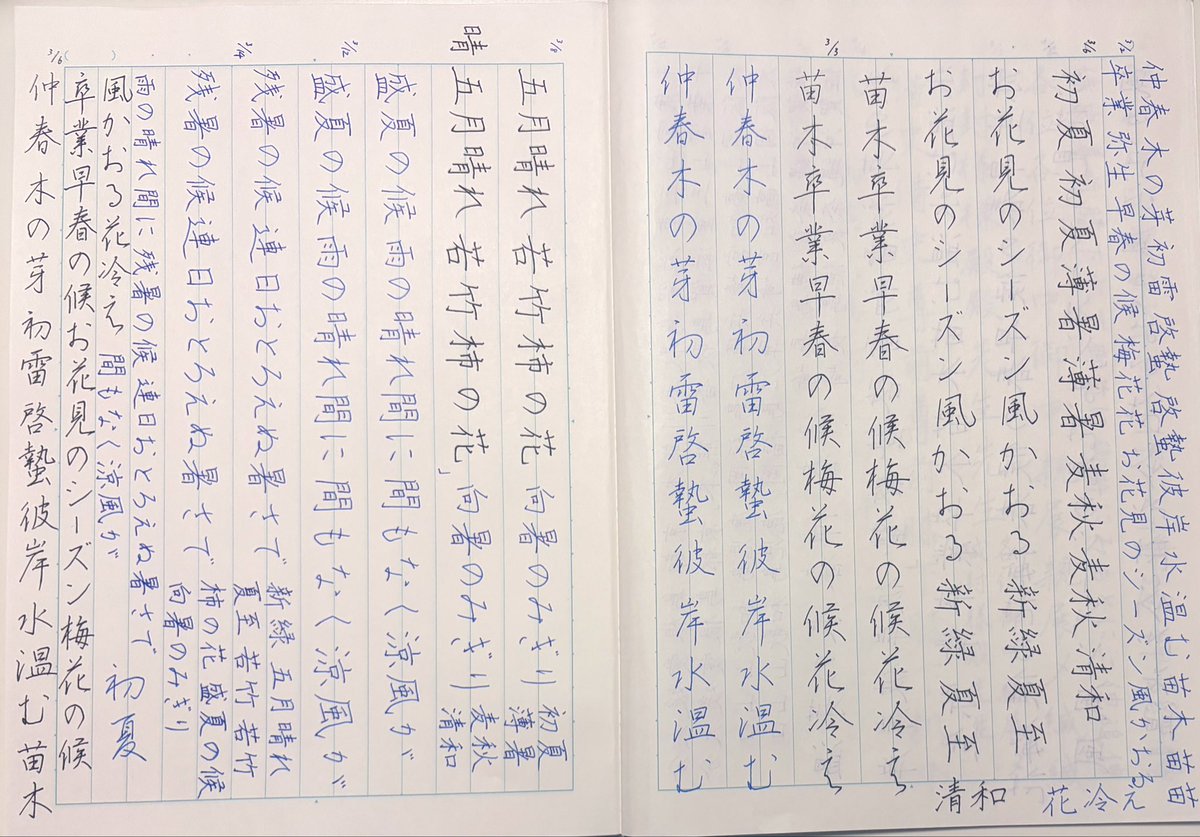 仲春木の芽初雷啓蟄啓蟄彼岸水温む苗木苗苗
3/2
卒業弥生早春の候梅花花お花見のシーズン風かおる
花冷え
3/6
初夏初夏薄暑薄暑麦秋麦秋清和
お花見のシーズン風かおる新緑夏至
お花見のシーズン風かおる新緑夏至
清和
3/3
苗木卒業早春の候梅花の候花冷え
苗木卒業早春の候梅花の候花冷え
仲春木の芽初雷啓蟄彼岸水温む
仲春木の芽初雷啓蟄彼岸水温む
五月晴れ若竹柿の花向暑のみぎり
初夏
薄暑
晴
五月晴れ若竹柿の花」向暑のみぎり
麦秋
清和
盛夏の候雨の晴れ間に間もなく涼風が
3/2
盛夏の候雨の晴れ間に間もなく涼風が
残暑の候連日おとろえぬ暑さで
新緑五月晴れ
夏至若竹若竹
3/4
残暑の候連日おとろえぬ暑さで
柿の花盛夏の候
向暑のみぎり
雨の晴れ間に残暑の候連日おとろえぬ暑さで
風かおる花冷え間もなく涼風が
初夏
卒業早春の候お花見のシーズン梅花の候
3/6( )
仲春木の芽初雷啓蟄彼岸水温む苗木